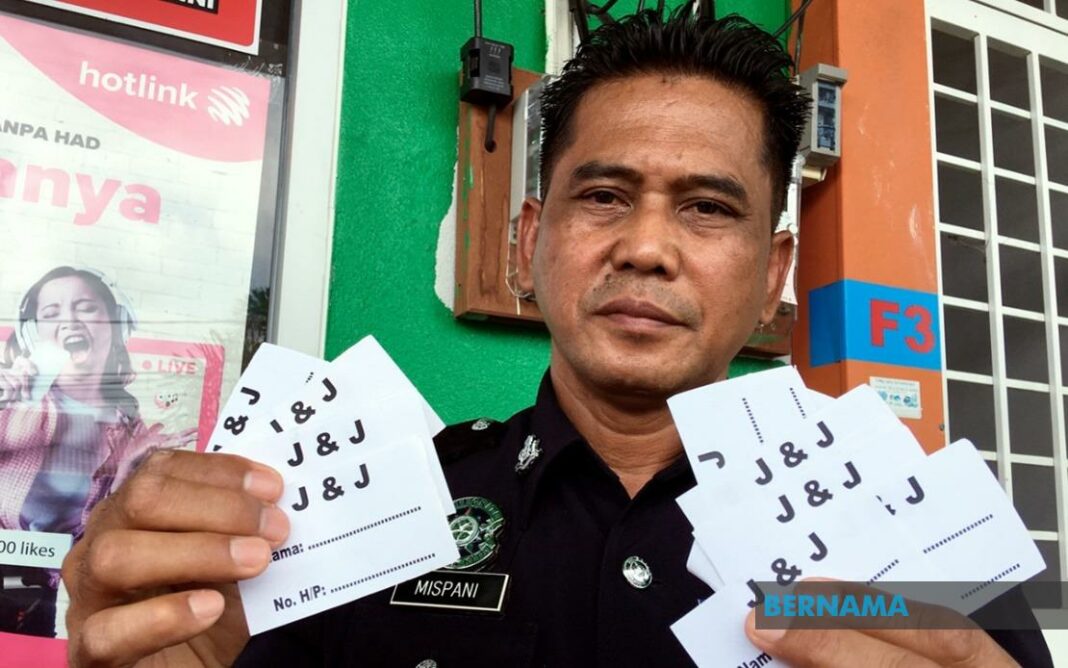 hotlink
ANPA HAD
anya
LIVE
00 likes
J & J
J & J
J & J
J & J
ama:
No. H/P:
MISPANI
J
J & J
J & J
J
J & J
Nam
F3
BERNAMA